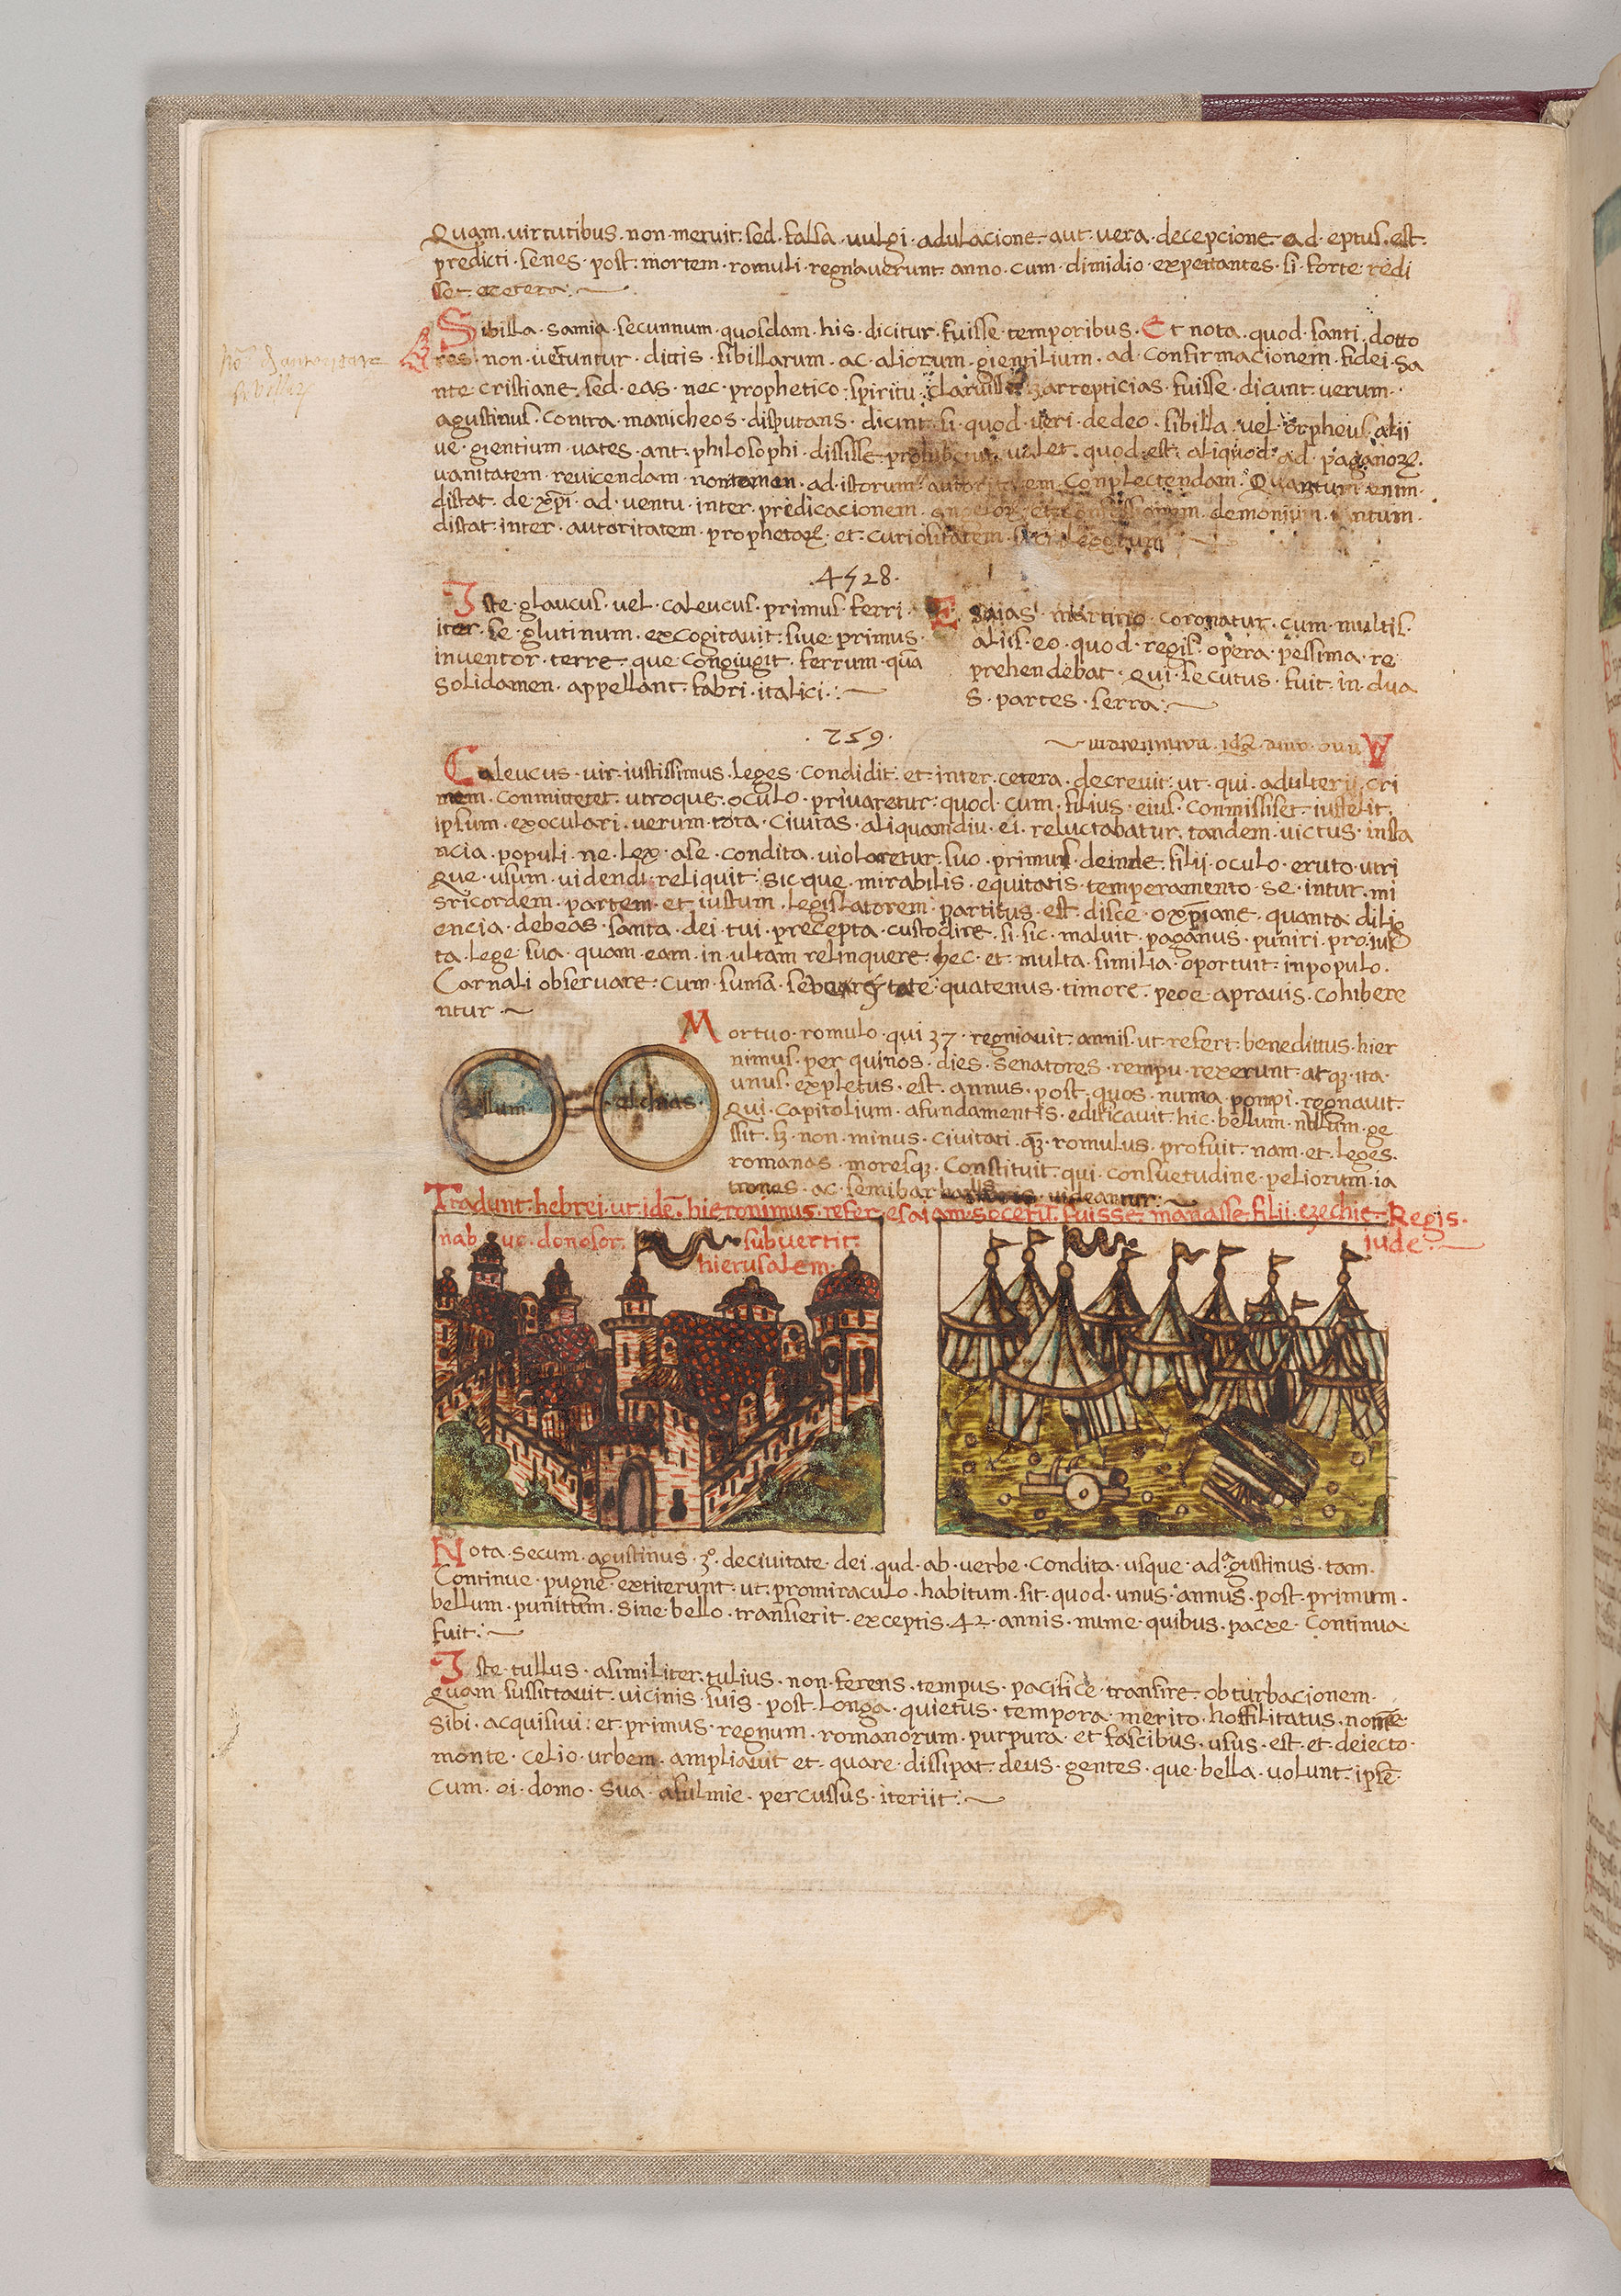 Quam. virtutibus. non. meruit. sed. falsa. vulgi. adulacione. aut. vera. decepcione. ad. eptus. est.
predicti. senes. post. mortem. romuli. regnaverunt. anno. cum. dimidio. expettantes. si. forte. redi
sset. et cetera.
Sibilla. samia. secunnum. quosdam. his. dicitur. fuisse. temporibus. Et nota. quod. santi. dotto
res. non. utuntur. dittis. sibillarum. ac. aliorum. gientilium. ad. confirmacionem. fidei. sa
nte. cristiane. sed. eas. nec. prophetico. spiritu. arrepticias. fuisse. dicunt. verum.
agustinus. contra. manicheos. disputans. dicint. si. quod. veri. de deo. sibilla. vel. orpheus. alii
ve. gientium. vates. ant. philosophi. dississe. valet. quod. est. aliquod. ad. paganoꝝ.
vanitatem. revicendam. non tamen. ad. istorum. conplectendam. Quantum. enim.
distat. de. xp̄i. ad. ventu. inter. predicacionem. demonium. tantum.
distat. inter. autoritatem. prophetaꝝ. et. curiositatem. sacrilegorum
.4528.
Iste. glaucus. vel. caleucus. primus. ferri.
iter. se. glutinum. excogitavit. sive. primus.
inventor. terre. que congiugit. ferrum. quā
solidamen. appellant. fabri. italici.
Esaias. martirio. coronatur. cum. multis.
aliis. eo. quod. regis. opera. pessima. re
prehendebat. qui. secutus. fuit. in. dua
s. partes. serra.
.259.
Caleucus. vir. iustissimus. leges. condidit. et. inter. cetera. decrevit. ut. qui. adulterii. cri
mem. conmitteret. utroque. oculo. privaretur. quod. cum. filius. eius. conmisisset. iussit.
ipsum. exoculari. verum. tota. civitas. aliquamdiu. ei. reluctabatur. tandem. victus. insta
ncia. populi. ne. lex. ase. condita. violaretur. suo. primus. deinde. filii. oculo. eruto. utri
que. usum. videndi. reliquit. sic que. mirabilis. equitatis. temperamento. se. intur. mi
sricordem. partem. et. iustum. legislatorem. partitus. est. disce. o xp̄iane. quanta. dilig
encia. debeas. santa. dei. tui. precepta. custodire. si. sic. maluit. paganus. puniri. pro. ius
ta. lege. sua. quam. eam. in. ultam relinquere. hec. et. multa. similia. oportuit. in populo.
Carnali observare. cum. suma. quatenus. timore. pene. apravis. cohibere
ntur.
Mortuo. romulo. qui 37. regniavit. annis. ut. refert. benedittus. hier
nimus. per quinos. dies. senatores. rempu. rexerunt. atqꝫ. ita.
unus. expletus. est. annus. post. quos. numa. pompi. regnavit.
Qui. capitolium. afundamentis. edificavit. hic. bellum. nullum. ge
ssit. sꝫ. non. minus. civitati. qꝫ. romulus. profuit. nam. et. leges.
romanas. moresqꝫ. constituit. qui. consuetudine. peliorum. ia
trones. ac. semibar videantur.
Tradunt. hebrei. ut. idē. hieronimus. refer. esaiam. socerū. fuisse. manasse. filii. ezechie. Regis.
iude.
nab uc. donosor. subvertit.
hierusalem.
Nota. secum. agustinus. 3º. decivitate. dei. qud. ab. verbe. condita. usque. ad. gustinus. tam.
Continue. pugne. extiterunt. ut. promiraculo. habitum. sit. quod. unus. annus. post. primum.
bellum. punittum. sine. bello. transierit. exceptis. 42. annis. nume. quibus. pacxe. continua.
fuit.
Iste. tullus. asimiliter. tulius. non. ferens. tempus. pacifice. transire. obturbacionem.
quam. sussittavit. vicinis. suis. post. longa. quietus. tempora. merito. hostilitatus. nomē.
sibi. acquisivi. et. primus. regnum. romanorum. purpura. et. fascibus. usus. est. et. deiecto.
monte. celio. urbem. ampliavit. et. quare. dissipat. deus. gentes. que. bella. volunt. ipse.
cum. oi. domo. sua. afulmie. percussus. iteriit.